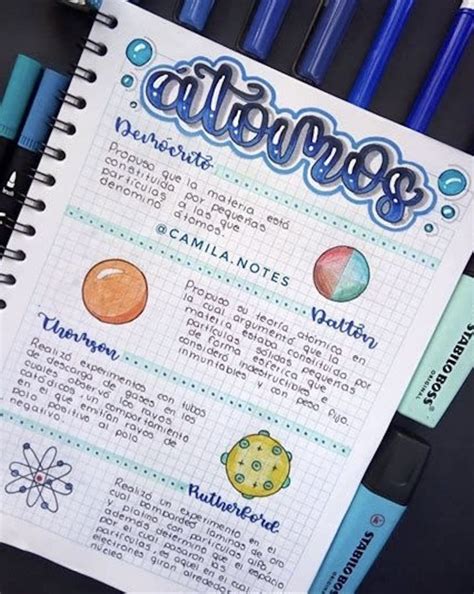 átomos
Demócrito
Propuso que la materia está
constituida por pequeñas
partículas a las que
denominó átomos.
@CAMILA.NOTES
Dalton
Propuso su teoría atómica en
la cual argumentó que la
materia estaba constituida por
partículas sólidas pequeñas
de forma esférica que
consideró indestructibles e
inmuntables y con peso fijo.
Thomson
Realizó experimentos con tubos
de descarga de gases en los
cuales observó los rayos
catódicos, un comportamiento
en el que emitían rayos del
polo positivo al polo
negativo.
Rutherford
Realizó un experimento en el
cual bombardeó láminas de oro
y platino con partículas alfa
además determinó que el espacio
por el cual pasaron las
partículas, es aquel en el cual los
electrones giran alrededor
núcleo.
STABILO BOSS
ORIGINAL
STABILO BOSS
ORIGINAL